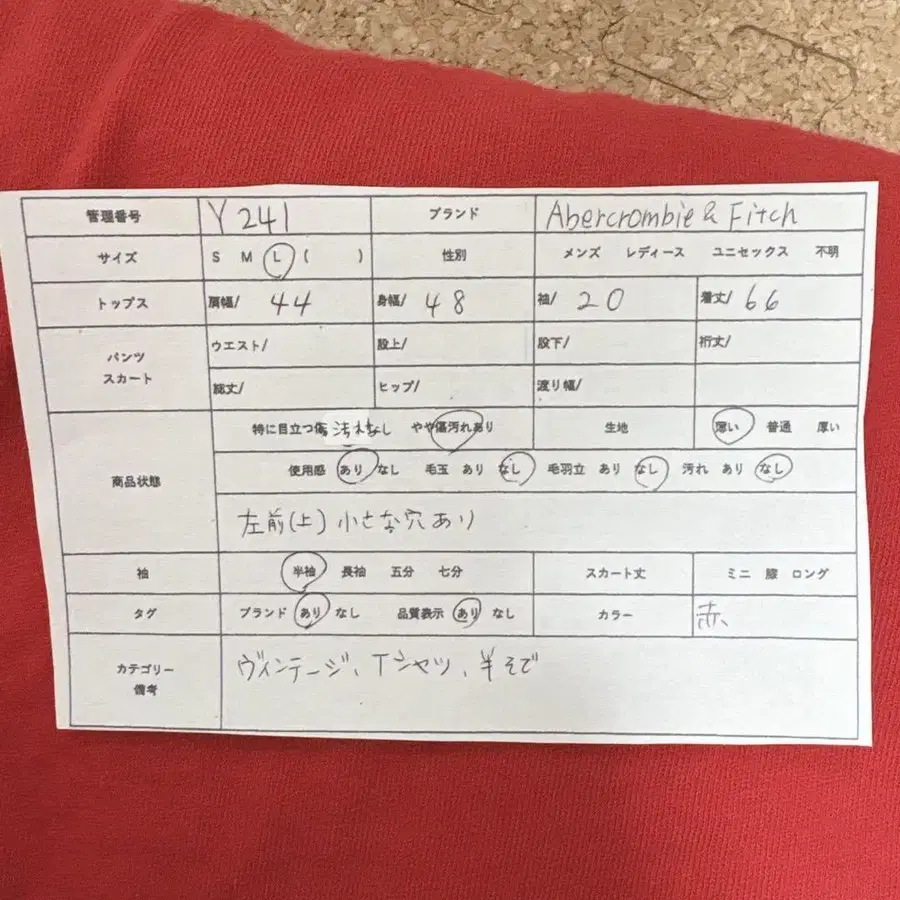 管理番号 Y241 ブランド Abercrombie & Fitch
サイズ S M L ( ) 性別 メンズ レディース ユニセックス 不明
トップス 肩幅/ 44 身幅/ 48 袖/ 20 着丈/ 66
パンツ スカート ウエスト/ 股上/ 股下/ 裄丈/
総丈/ ヒップ/ 渡り幅/
商品状態 特に目立つ傷汚れなし やや傷汚れあり 生地 薄い 普通 厚い
使用感 あり なし 毛玉 あり なし 毛羽立 あり なし 汚れ あり なし
左前(上) 小さな穴あり
袖 半袖 長袖 五分 七分 スカート丈 ミニ 膝 ロング
タグ ブランド あり なし 品質表示 あり なし カラー 赤、
カテゴリー 備考 ヴィンテージ、Tシャツ、半そで